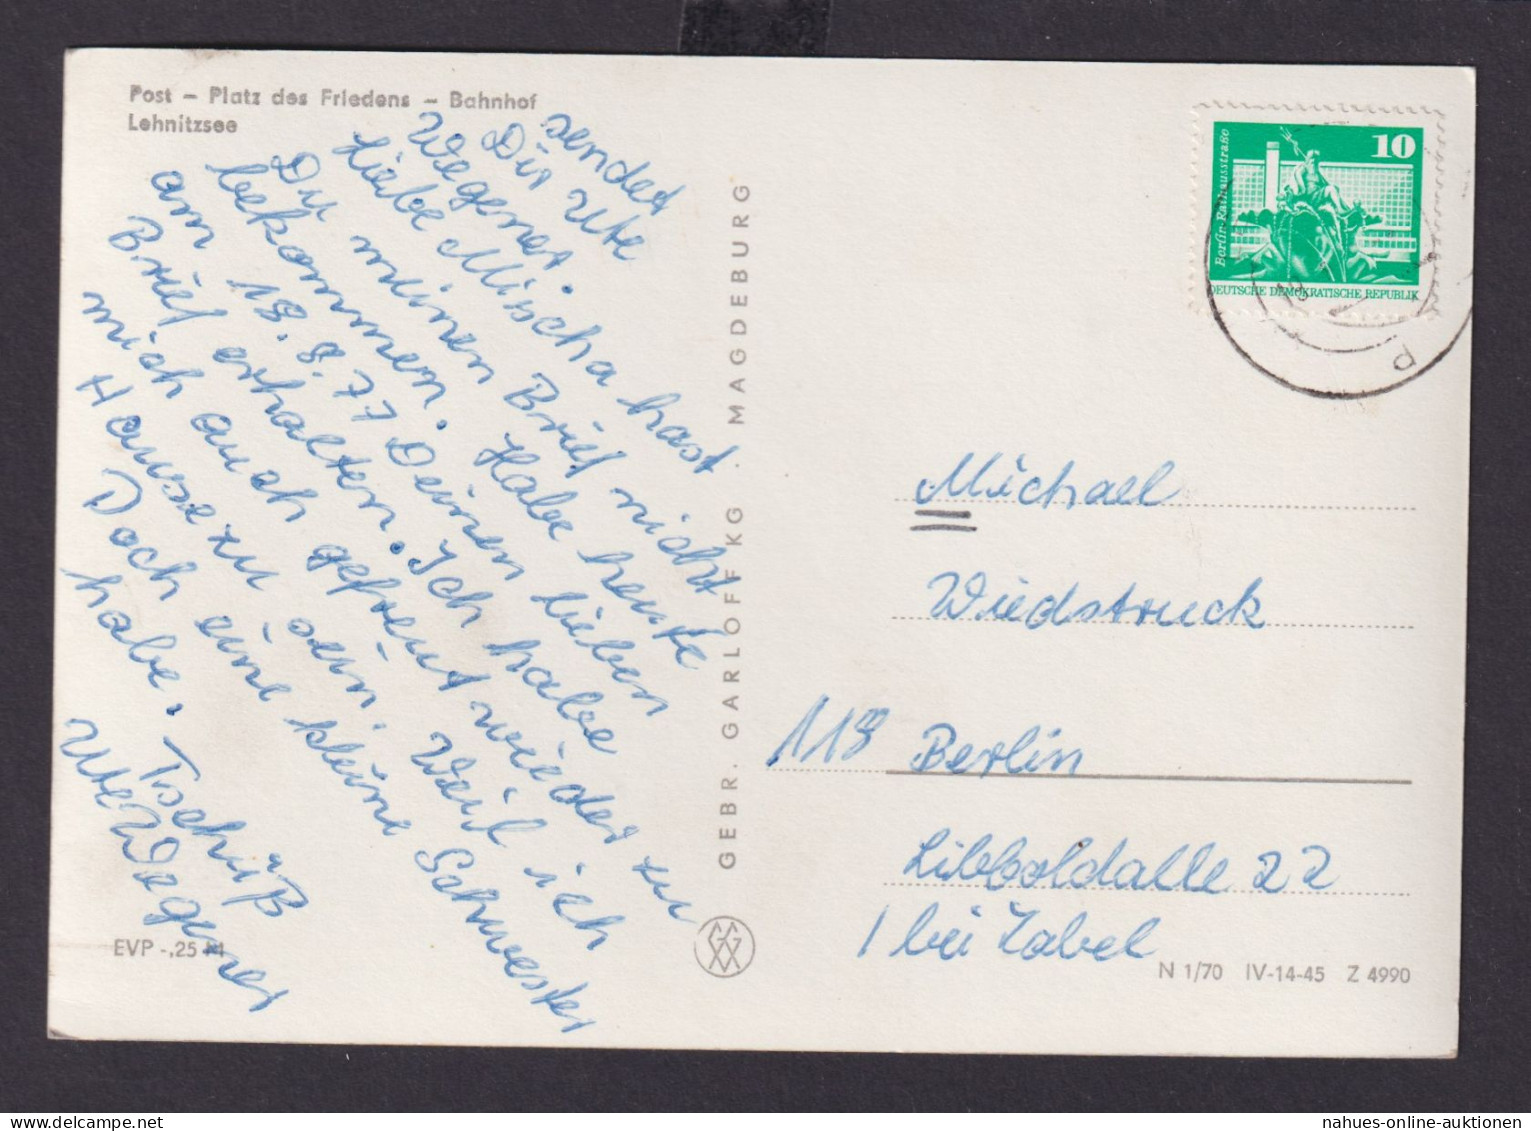 Post – Platz des Friedens – Bahnhof
Lehnitzsee
sendet
Dir Ute
Wegener.
Liebe Mischa hast
Du meinen Brief nicht
bekommen. Habe heute
am 18.8.77 Deinen lieben
Brief erhalten. Ich habe
mich auch gefreut wieder zu
Hause zu sein. Weil ich
Doch eine kleine Schwester
habe. Tschüß
Ute Wegener
EVP -,25 M
GEBR. GARLOFF KG. MAGDEBURG
10
Berlin-Rathausstraße
DEUTSCHE DEMOKRATISCHE REPUBLIK
Michael
Wiedstruck
118 Berlin
Libboldallle 22
bei Zabel
N 1/70 IV-14-45 Z 4990
nahues-online-auktionen